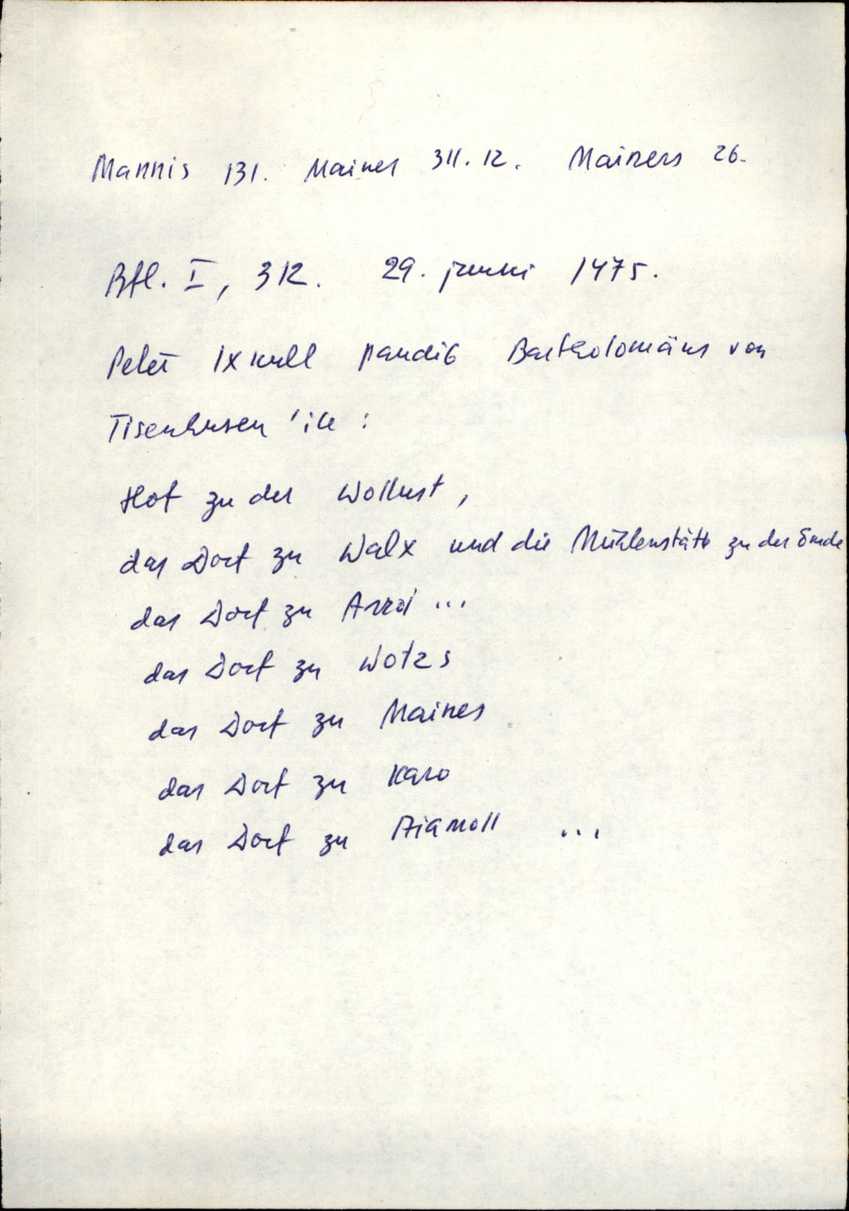 Mannis 131. Maines 311.12. Mainers 26.
Bfl. I, 312. 29. juuni 1475.
Peter Ixkull pandib Bartholomäus von
Tisenhusen 'ile:
Hof zu der Wollust,
das Dorf zu Walx und die Mühlenstätte zu der Ende
das Dorf zu Arrol ...
das Dorf zu Wotzs
das Dorf zu Maines
das Dorf zu Karo
das Dorf zu ...